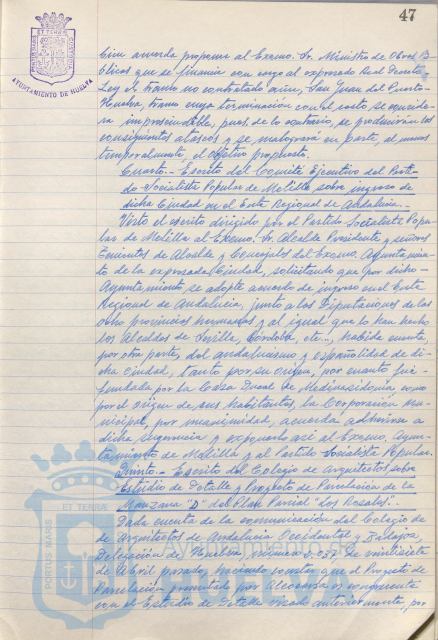 47
AYUNTAMIENTO DE HUELVA
ción acuerda proponer al Excmo. Sr. Ministro de Obras Pú-
blicas que se financie con cargo al expresado Real Decreto
Ley el tramo no contratado aún, San Juan del Puerto-
Huelva, tramo cuya terminación con el resto se conside-
ra imprescindible, pues, de lo contrario, se producirán los
consiguientes atascos y se malogrará en parte, al menos
temporalmente, el objetivo propuesto.
Cuarto.- Escrito del Comité Ejecutivo del Parti-
do Socialista Popular de Melilla sobre ingreso de
dicha Ciudad en el Ente Regional de Andalucía.-
Visto el escrito dirigido por el Partido Socialista Popu-
lar de Melilla al Excmo. Sr. Alcalde Presidente y señores
Tenientes de Alcalde y Concejales del Excmo. Ayuntamien-
to de la expresada Ciudad, solicitando que por dicho
Ayuntamiento se adopte acuerdo de ingreso en el Ente
Regional de Andalucía, junto a las Diputaciones de las
ocho provincias hermanas y al igual que lo han hecho
los Alcaldes de Sevilla, Córdoba, etc.., habida cuenta,
por otra parte, del andalucismo y españolidad de di-
cha ciudad, tanto por su origen, por cuanto fué
fundada por la Casa Ducal de Medinasidonia, como
por el origen de sus habitantes, la Corporación Mu-
nicipal, por unanimidad, acuerda adherirse a
dicha sugerencia y exponerlo así al Excmo. Ayun-
tamiento de Melilla y al Partido Socialista Popular.
Quinto.- Escrito del Colegio de Arquitectos sobre
Estudio de Detalle y Proyecto de Parcelación de la
Manzana "D" del Plan Parcial "Los Rosales".-
Dada cuenta de la comunicación del Colegio de
de Arquitectos de Andalucía Occidental y Badajoz,
Delegación de Huelva, número 0.037 de veintisiete
de Abril pasado, haciendo constar que el Proyecto de
Parcelación presentado por es congruente
con el Estudio de Detalle visado anteriormente, por
PORTUS MARIS ET TERRAE